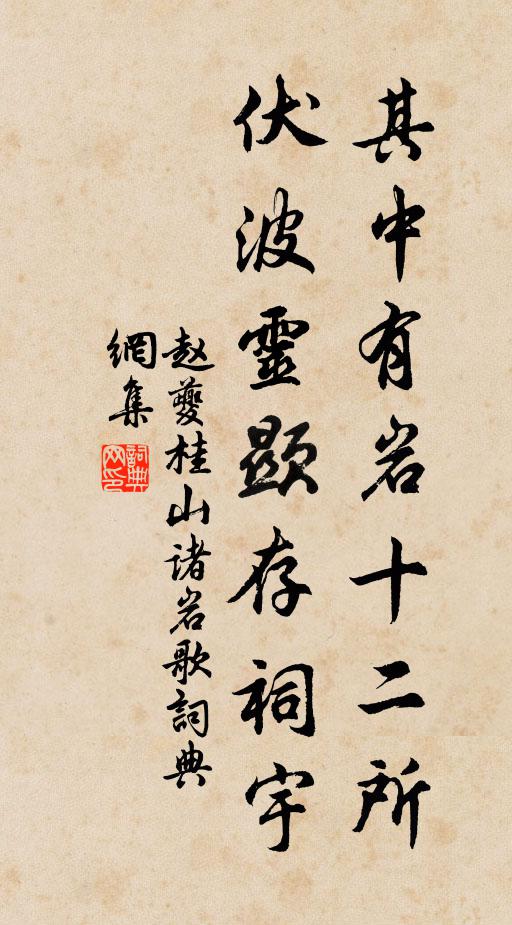 其中有岩十二所
伏波靈顯存祠宇
赵夔桂山诸岩歌詞典
網集
詞典网印